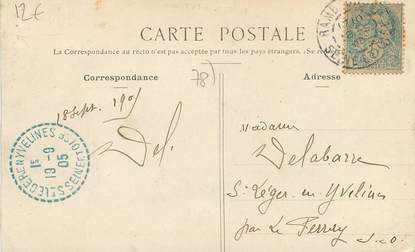 12€
CARTE POSTALE
La Correspondance au recto n'est pas acceptée par tous les pays étrangers.
Correspondance
78
Adresse
RAMB
18 Sept. 1905
Del.
Madame
Delabarre
St Léger-en-Yvelines
par Le Perray S.-O.
ST LEGER EN YVELINES
1E
19-9
05
SEINE ET OISE